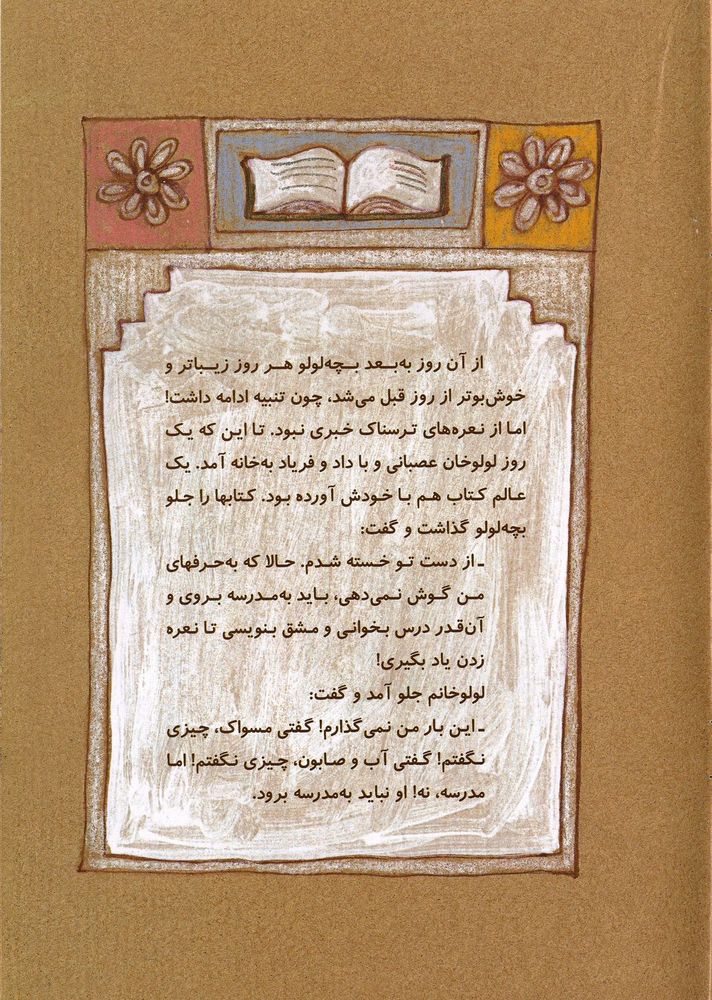 از آن روز به‌بعد بچه‌لولو هر روز زیباتر و
خوش‌بوتر از روز قبل می‌شد، چون تنبیه ادامه داشت!
اما از نعره‌های ترسناک خبری نبود. تا این که یک
روز لولوخان عصبانی و با داد و فریاد به‌خانه آمد. یک
عالم کتاب هم با خودش آورده بود. کتابها را جلو
بچه‌لولو گذاشت و گفت:
ـ از دست تو خسته شدم. حالا که به‌حرفهای
من گوش نمی‌دهی، باید به‌مدرسه بروی و
آن‌قدر درس بخوانی و مشق بنویسی تا نعره
زدن یاد بگیری!
لولوخانم جلو آمد و گفت:
ـ این بار من نمی‌گذارم! گفتی مسواک، چیزی
نگفتم! گفتی آب و صابون، چیزی نگفتم! اما
مدرسه، نه! او نباید به‌مدرسه برود.